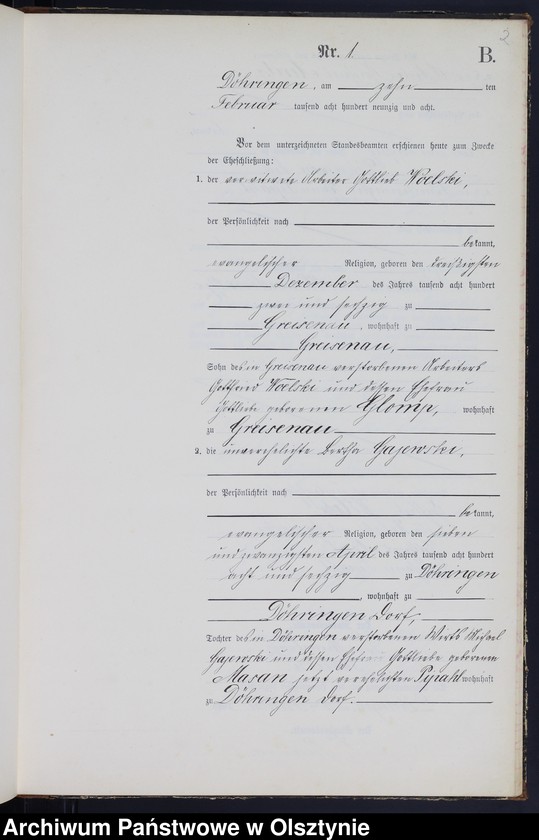 2
Nr. 1. B.
Döhringen, am zehn ten
Februar tausend acht hundert neunzig und acht.
Vor dem unterzeichneten Standesbeamten erschienen heute zum Zwecke
der Eheschließung:
1. der verwitwete Arbeiter Gottlieb Woelski,
der Persönlichkeit nach
bekannt,
evangelischer Religion, geboren den dreißigsten
Dezember des Jahres tausend acht hundert
zwei und sechzig zu
Greisenau, wohnhaft zu
Greisenau,
Sohn des in Greisenau verstorbenen Arbeiters
Woelski und dessen Ehefrau
Gottliebe geborenen Glomp, wohnhaft
zu Greisenau
2. die unverehelichte Bertha Gajewski,
der Persönlichkeit nach
bekannt,
evangelischer Religion, geboren den sieben
und zwanzigsten April des Jahres tausend acht hundert
acht und sechzig zu Döhringen
, wohnhaft zu
Döhringen Dorf,
Tochter des in Döhringen verstorbenen Wirts Michael
Gajewski und dessen Ehefrau Gottliebe geborenen
Masan jetzt verehelichten wohnhaft
zu Döhringen Dorf.
Archiwum Państwowe w Olsztynie